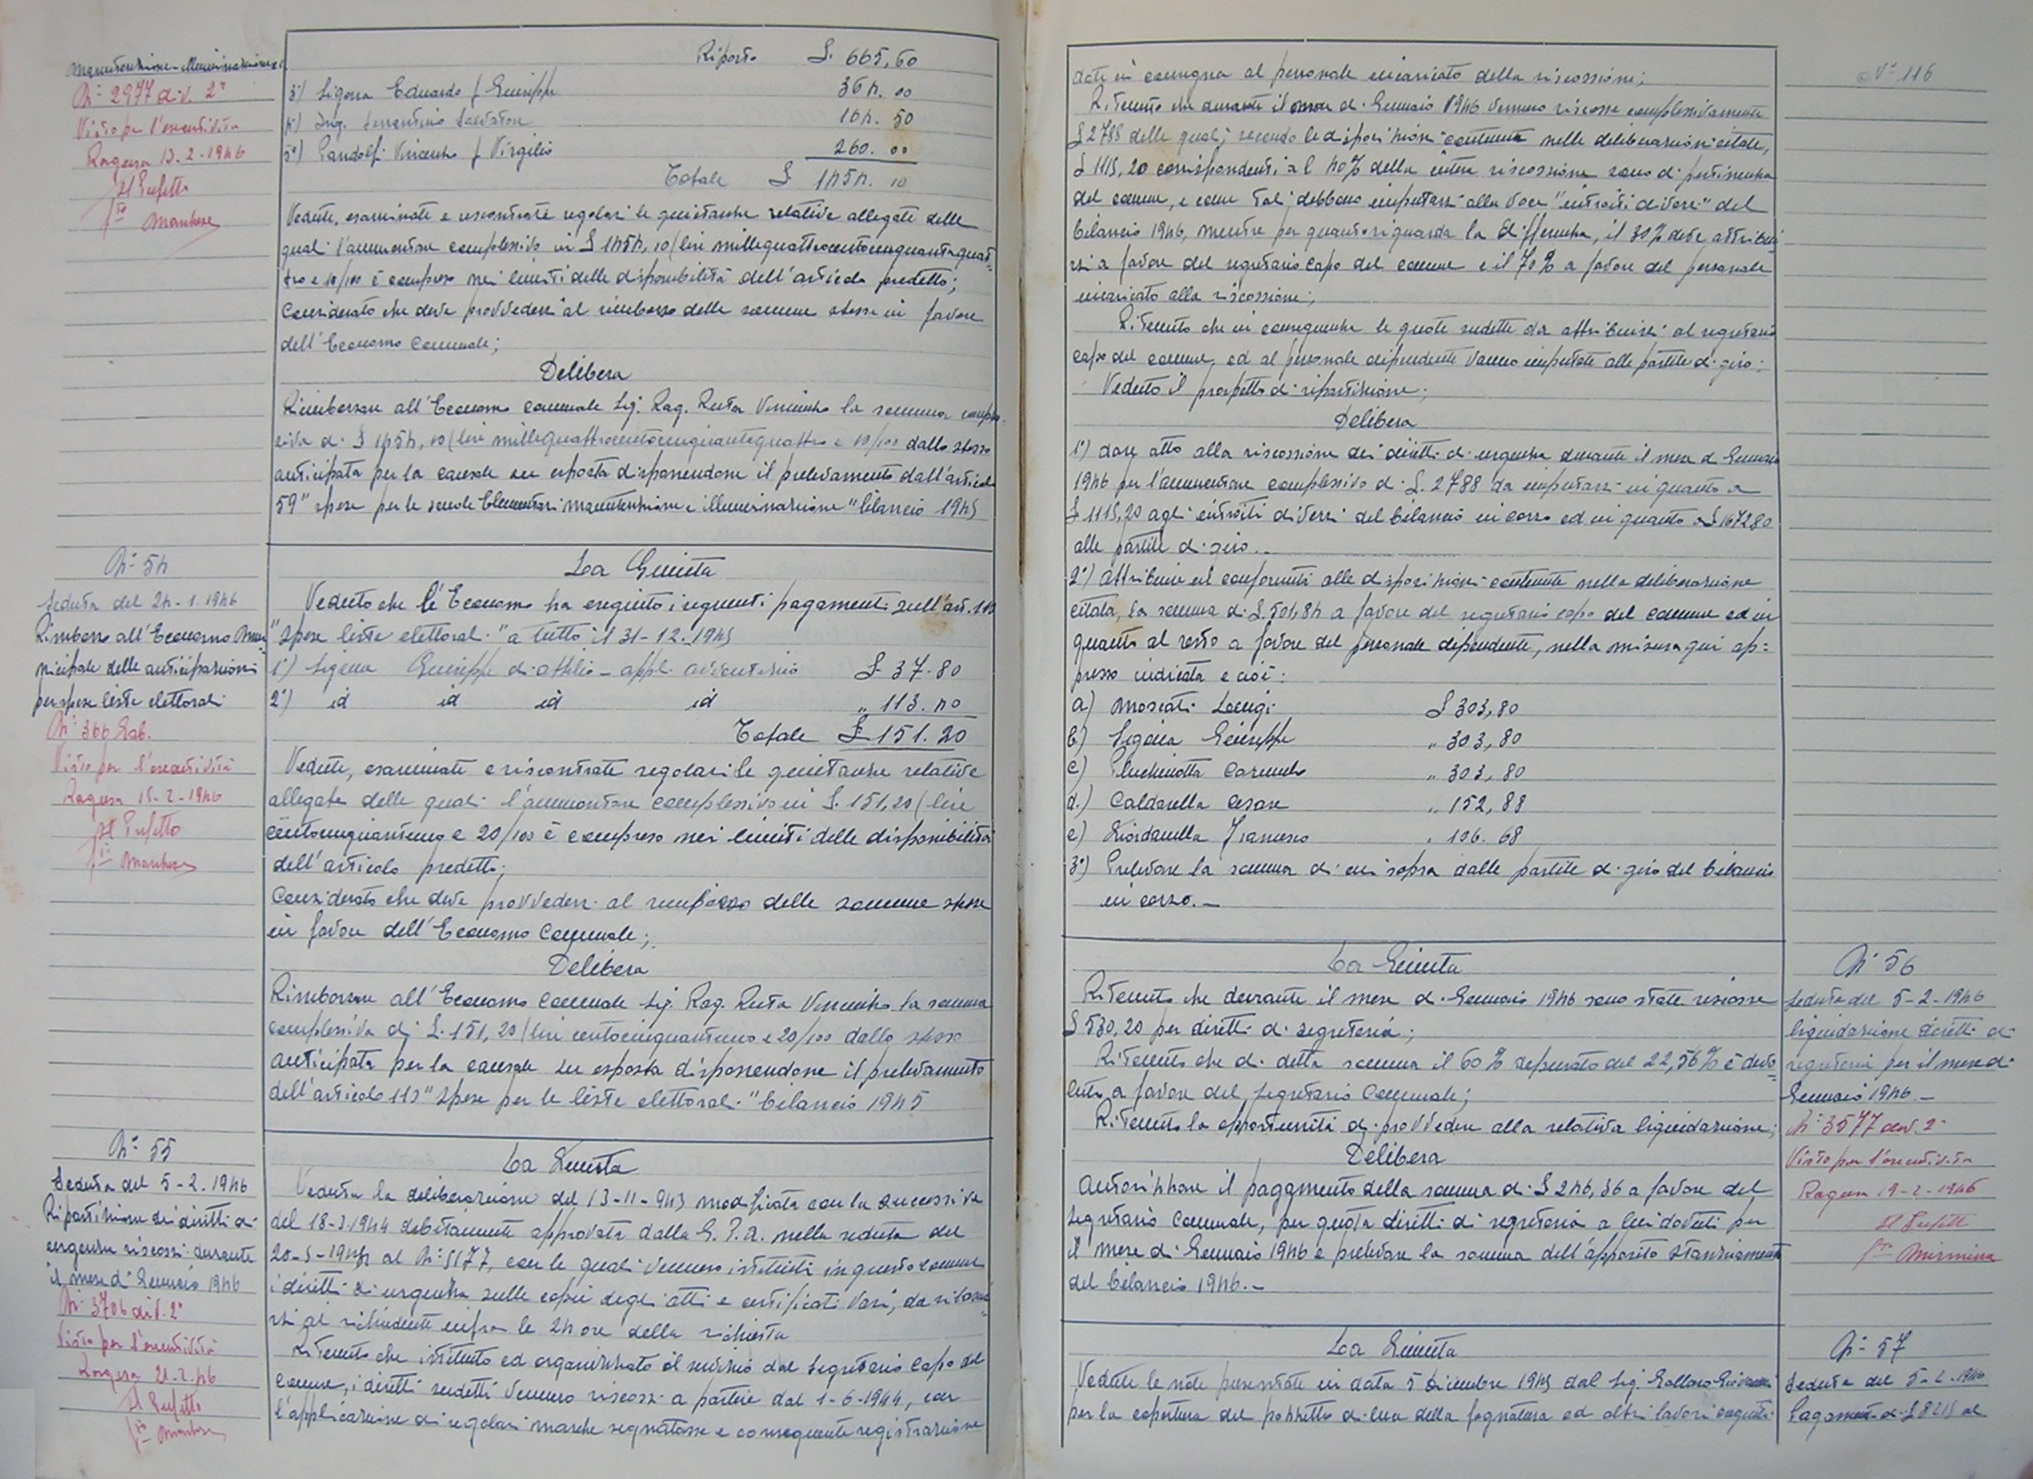 manutenzione illuminazione
N° 2977 div. 2ª
Visto per l'esecutività
Ragusa 13-2-1946
Il Prefetto
Riporto £. 665,60
3°) Ligora Eduardo f Giuseppe 364.00
4°) Ing. Sorrentino Salvatore 164.50
5°) Pandolfi Vincenzo f Virgilio 260.00
Totale £ 1454.10
Vedute, esaminate e riscontrate regolari le quietanze relative allegate delle
quali l'ammontare complessivo in £ 1454,10 (lire millequattrocentocinquantaquat-
tro e 10/100 è compreso nei limiti delle disponibilità dell'articolo predetto;
Considerato che deve provvedersi al rimborso delle somme stesse in favore
dell'Economo Comunale;
Delibera
Rimborsare all'Economo comunale Sig. Rag. Ruta Vincenzo la somma comples-
siva di £ 1454,10 (lire millequattrocentocinquantaquattro e 10/100 dallo stesso
anticipata per la causale su esposta disponendone il prelevamento dall'articolo
59 "spese per le scuole Elementari manutenzione e illuminazione" bilancio 1945
N° 54
Seduta del 24-1-1946
Rimborso all'Economo Mu-
nicipale delle anticipazioni
per spese liste elettorali
N° 366 Gab.
Visto per l'esecutività
Ragusa 15-2-1946
Il Prefetto
La Giunta
Veduto che l'Economo ha eseguito i seguenti pagamenti sull'art. 113
"Spese liste elettorali" a tutto il 31-12-1945
1°) Ligora Giuseppe di Attilio - appl. avventizio £ 37.80
2°) id id id id „ 113.40
Totale £ 151.20
Vedute, esaminate e riscontrate regolari le quietanze relative
allegate delle quali l'ammontare complessivo in £. 151,20 (lire
centocinquantuno e 20/100 è compreso nei limiti delle disponibilità
dell'articolo predetto;
Considerato che deve provvedersi al rimborso delle somme stesse
in favore dell'Economo Comunale;
Delibera
Rimborsare all'Economo Comunale Sig. Rag. Ruta Vincenzo la somma
complessiva di £. 151,20 (lire centocinquantuno e 20/100 dallo stesso
anticipata per la causale su esposta disponendone il prelevamento
dell'articolo 113 "Spese per le liste elettorali" bilancio 1945
N° 55
Seduta del 5-2-1946
Ripartizione dei diritti di
urgenza riscossi durante
il mese di Gennaio 1946
N° 3706 div. 2ª
Visto per l'esecutività
Ragusa 21-2-46
Il Prefetto
La Giunta
Veduta la deliberazione del 13-11-943 modificata con la successiva
del 18-3-1944 debitamente approvata dalla G. P. A. nella seduta del
20-5-1944 al N° 5177, con le quali vennero istituiti in questo comune
i diritti di urgenza sulle copie degli atti e certificati vari, da rilasciar-
si al richiedente infra le 24 ore della richiesta
Ritenuto che istituito ed organizzato il servizio dal Segretario Capo del
comune, i diritti suddetti vennero riscossi a partire dal 1-6-1944, con
l'applicazione di regolari marche segnatasse e conseguente registrazione
N° 116
date in consegna al personale incaricato della riscossione;
Ritenuto che durante il mese di Gennaio 1946 vennero riscosse complessivamente
£ 2788 delle quali, secondo le disposizioni contenute nelle deliberazioni citate,
£ 1115,20 corrispondenti al 40% della intera riscossione sono di pertinenza
del comune, e come tali debbono imputarsi alla voce "introiti diversi" del
bilancio 1946, mentre per quanto riguarda la differenza, il 30% deve attribuir-
si a favore del segretario capo del comune e il 70% a favore del personale
incaricato alla riscossione;
Ritenuto che in conseguenza le quote suddette da attribuirsi al segretario
capo del comune, ed al personale dipendente vanno imputate alle partite di giro;
Veduto il prospetto di ripartizione;
Delibera
1°) dare atto alla riscossione dei diritti di urgenza durante il mese di Gennaio
1946 per l'ammontare complessivo di £. 2788 da imputarsi in quanto a
£ 1115,20 agli introiti diversi del bilancio in corso ed in quanto a £ 1672,80
alle partite di giro.
2°) attribuire in conformità alle disposizioni contenute nella deliberazione
citata, la somma di £ 501,84 a favore del segretario capo del comune ed in
quanto al resto a favore del personale dipendente, nella misura qui ap=
presso indicata e cioè:
a) Moscati Luigi £ 303,80
b) Ligora Giuseppe „ 303,80
c) Puchinotta Carmelo „ 303,80
d) Caldarella Cesare „ 152,88
e) Giordanella Francesco „ 106.68
3°) Prelevare la somma di cui sopra dalle partite di giro del bilancio
in corso.-
La Giunta
Ritenuto che durante il mese di Gennaio 1946 sono state riscosse
£ 530,20 per diritti di segreteria;
Ritenuto che di detta somma il 60% depurato del 22,56% è devo-
luto a favore del Segretario Comunale;
Ritenuto la opportunità di provvedere alla relativa liquidazione;
Delibera
Autorizzare il pagamento della somma di £ 246,36 a favore del
Segretario Comunale, per quota diritti di segreteria a lui dovuti per
il mese di Gennaio 1946 e prelevare la somma dell'apposito stanziamento
del bilancio 1946.-
N° 56
Seduta del 5-2-1946
liquidazione diritti di
segreteria per il mese di
Gennaio 1946.-
N° 3577 div. 2ª
Visto per l'esecutività
Ragusa 19-2-1946
Il Prefetto
La Giunta
Vedute le note presentate in data 5 dicembre 1945 dal Sig. Giovanni
per la copertura del pozzetto di luce della fognatura ed altri lavori eseguiti
N° 57
Seduta del 5-2-1946
Pagamento di £ 8215 al